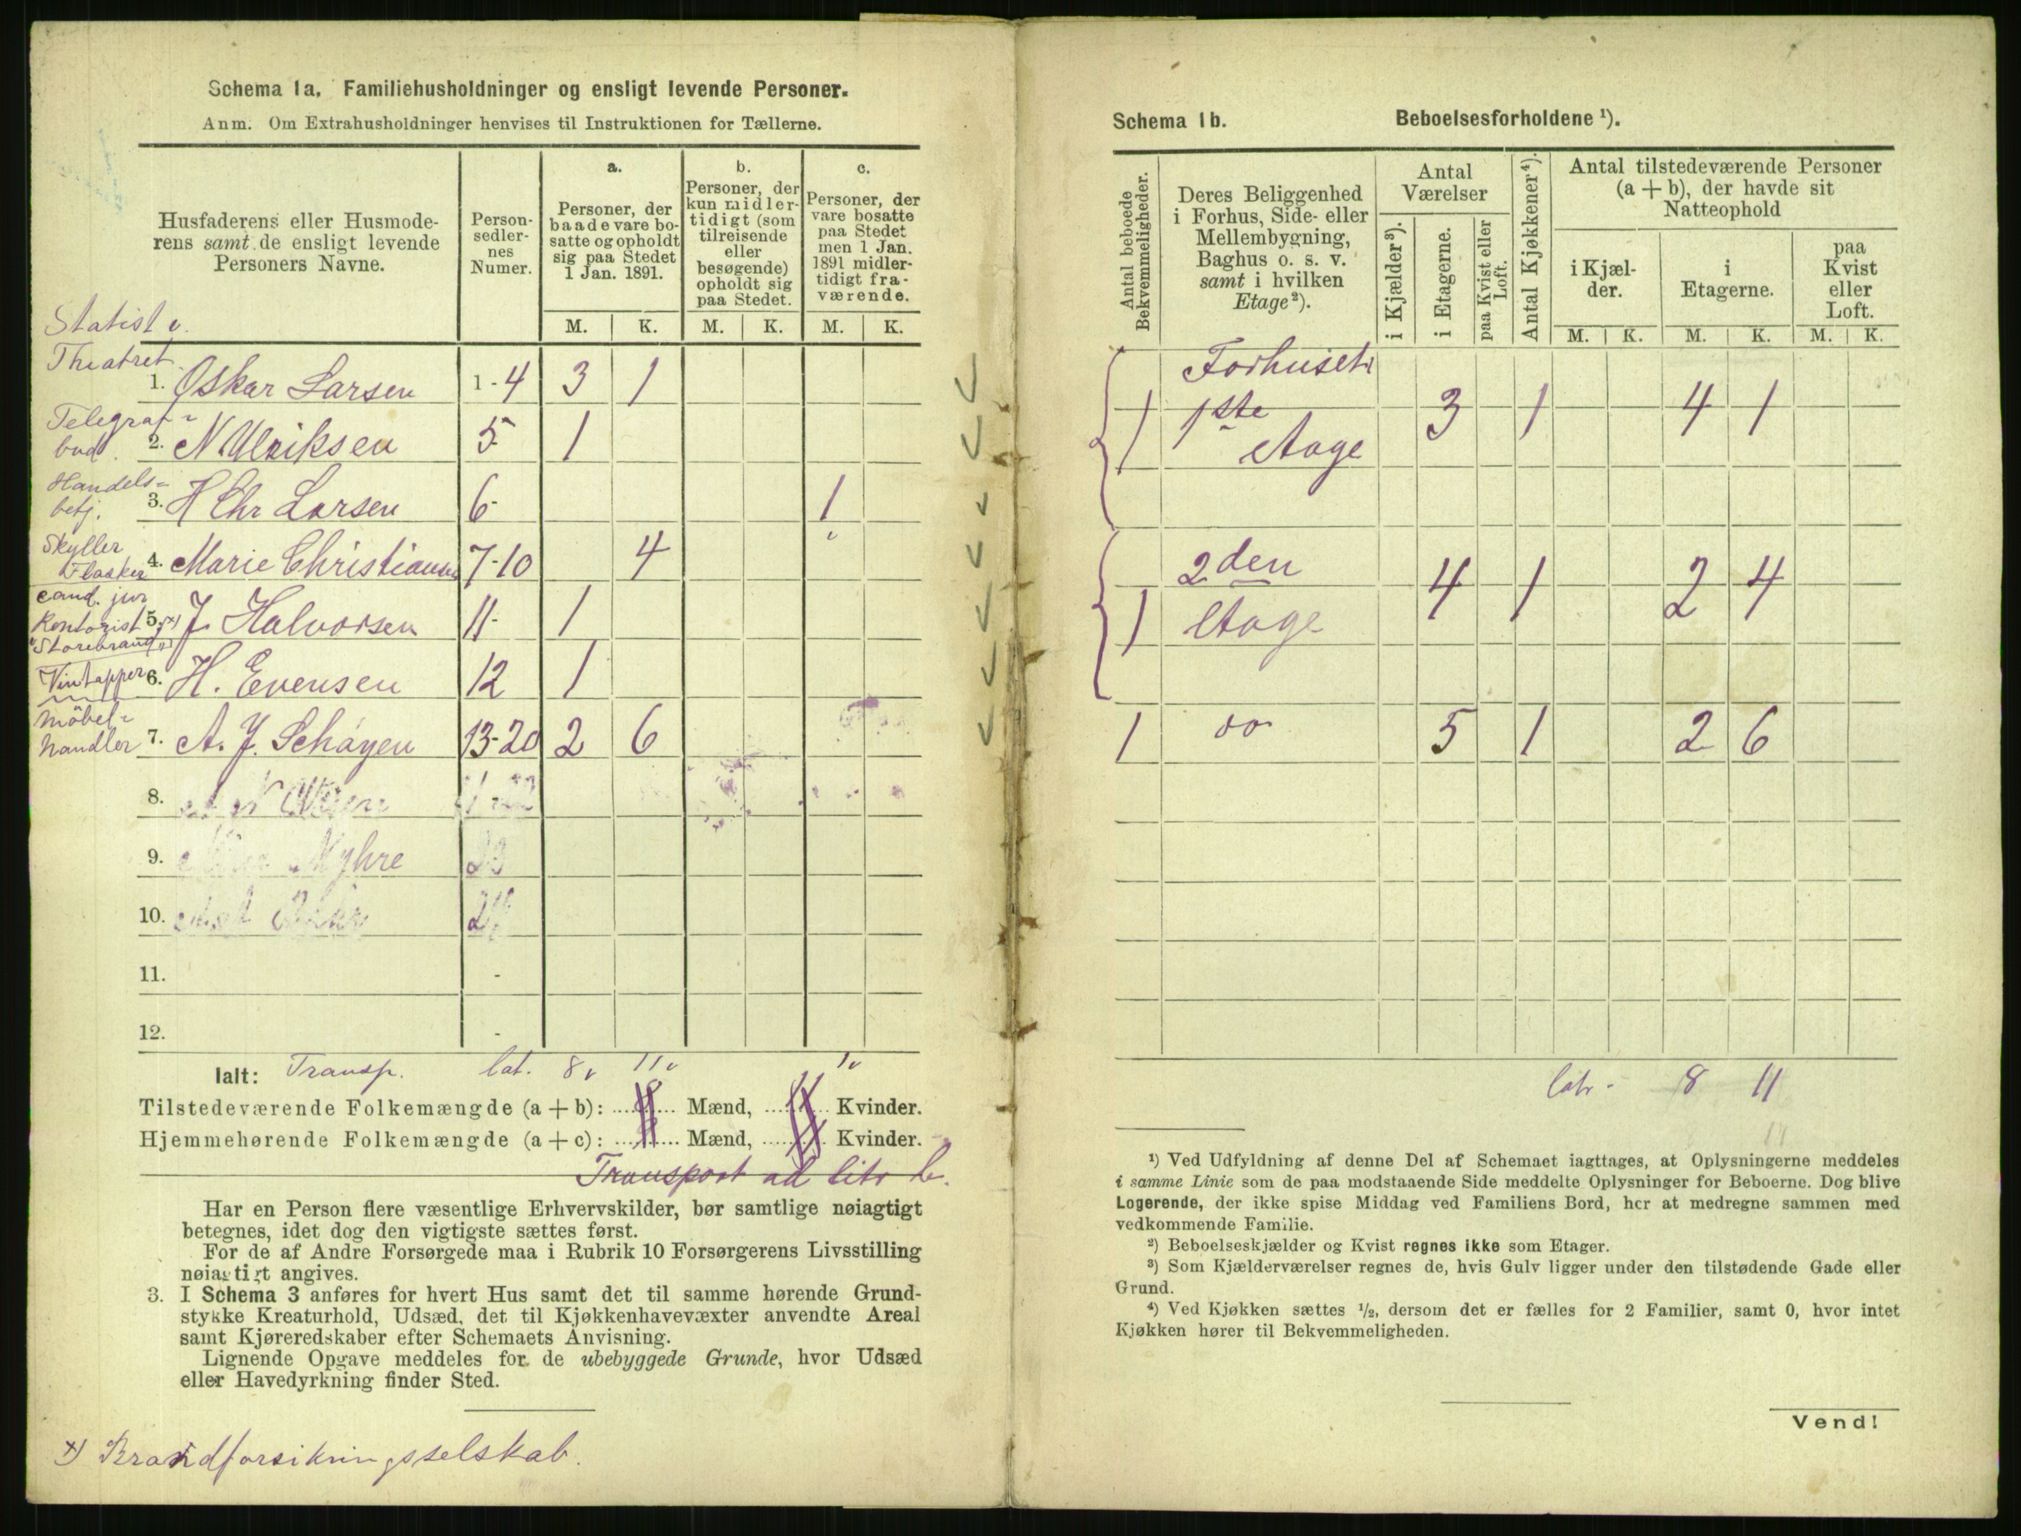 Schema 1a. Familiehusholdninger og ensligt levende Personer.
Anm. Om Extrahusholdninger henvises til Instruktionen for Tællerne.
Husfaderens eller Husmode-
rens samt de ensligt levende
Personers Navne.
Person-
sedler-
nes
Numer.
a.
Personer, der
baade vare bo-
satte og opholdt
sig paa Stedet
1 Jan. 1891.
b.
Personer, der
kun midler-
tidigt (som
tilreisende
eller
besøgende)
opholdt sig
paa Stedet.
c.
Personer, der
vare bosatte
paa Stedet
men 1 Jan.
1891 midler-
tidigt fra-
værende.
M. K. M. K. M. K.
Statist v.
Theatret
1. Oskar Larsen 1-4 3 1
Telegraf-
bud. 2. N Ulriksen 5- 1
Handels-
betj. 3. H Chr Larsen 6- 1
Skyller
Flasker 4. Marie Christians 7-10 4
cand. jur
Kontorist 5. x) J. Halvorsen 11- 1
"Storebrand"
Vintapper 6. H. Evensen 12 1
Möbel-
handler 7. A. J. Schøyen 13-20 2 6
8.
9. Myhre
10.
11. -
12. -
Ialt: Transp. lat. 8 11 1
Tilstedeværende Folkemængde (a + b): Mænd, Kvinder.
Hjemmehørende Folkemængde (a + c): Mænd, Kvinder.
Transport ad litr b.
Har en Person flere væsentlige Erhvervskilder, bør samtlige nøiagtigt
betegnes, idet dog den vigtigste sættes først.
For de af Andre Forsørgede maa i Rubrik 10 Forsørgerens Livsstilling
nøiagtigt angives.
3. I Schema 3 anføres for hvert Hus samt det til samme hørende Grund-
stykke Kreaturhold, Udsæd, det til Kjøkkenhavevæxter anvendte Areal
samt Kjøreredskaber efter Schemaets Anvisning.
Lignende Opgave meddeles for de ubebyggede Grunde, hvor Udsæd
eller Havedyrkning finder Sted.
x) Brandforsikringsselskab.
Schema 1b. Beboelsesforholdene ¹).
Antal beboede
Bekvemmeligheder.
Deres Beliggenhed
i Forhus, Side- eller
Mellembygning,
Baghus o. s. v.
samt i hvilken
Etage ²).
Antal
Værelser
i Kjælder ³).
i Etagerne.
paa Kvist eller
Loft.
Antal Kjøkkener ⁴).
Antal tilstedeværende Personer
(a + b), der havde sit
Natteophold
i Kjæl-
der.
i
Etagerne.
paa
Kvist
eller
Loft.
M. K. M. K. M. K.
Forhuset
1 1ste 3 1 4 1
Etage
2den
1 Etage 4 1 2 4
1 do 5 1 2 6
latr. 8 11
¹) Ved Udfyldning af denne Del af Schemaet iagttages, at Oplysningerne meddeles
i samme Linie som de paa modstaaende Side meddelte Oplysninger for Beboerne. Dog blive
Logerende, der ikke spise Middag ved Familiens Bord, her at medregne sammen med
vedkommende Familie.
²) Beboelseskjælder og Kvist regnes ikke som Etager.
³) Som Kjælderværelser regnes de, hvis Gulv ligger under den tilstødende Gade eller
Grund.
⁴) Ved Kjøkken sættes ½, dersom det er fælles for 2 Familier, samt 0, hvor intet
Kjøkken hører til Bekvemmeligheden.
Vend!